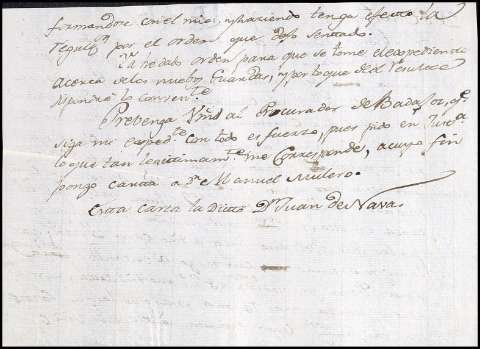 formandose con el mio, y haciendo tenga efecto la
regul.ᵒⁿ por el orden que dejo sentado.
Ya he dado orden para que se tome el expediente
acerca de los nuebos Guardas, y por lo que de el resultare
Mandaré lo combente.
Prebenga Vmd al Procurador de Badajoz, q.ᵉ
siga mi exped.ᵗᵉ con todo esfuerzo, pues pido en Just.ᵃ
lo que tan lexitimam.ᵗᵉ me corresponde, a cuyo fin
pongo carta a Dⁿ Manuel Mulero.
Esta Carta la Dicto Dⁿ Juan de Nava.